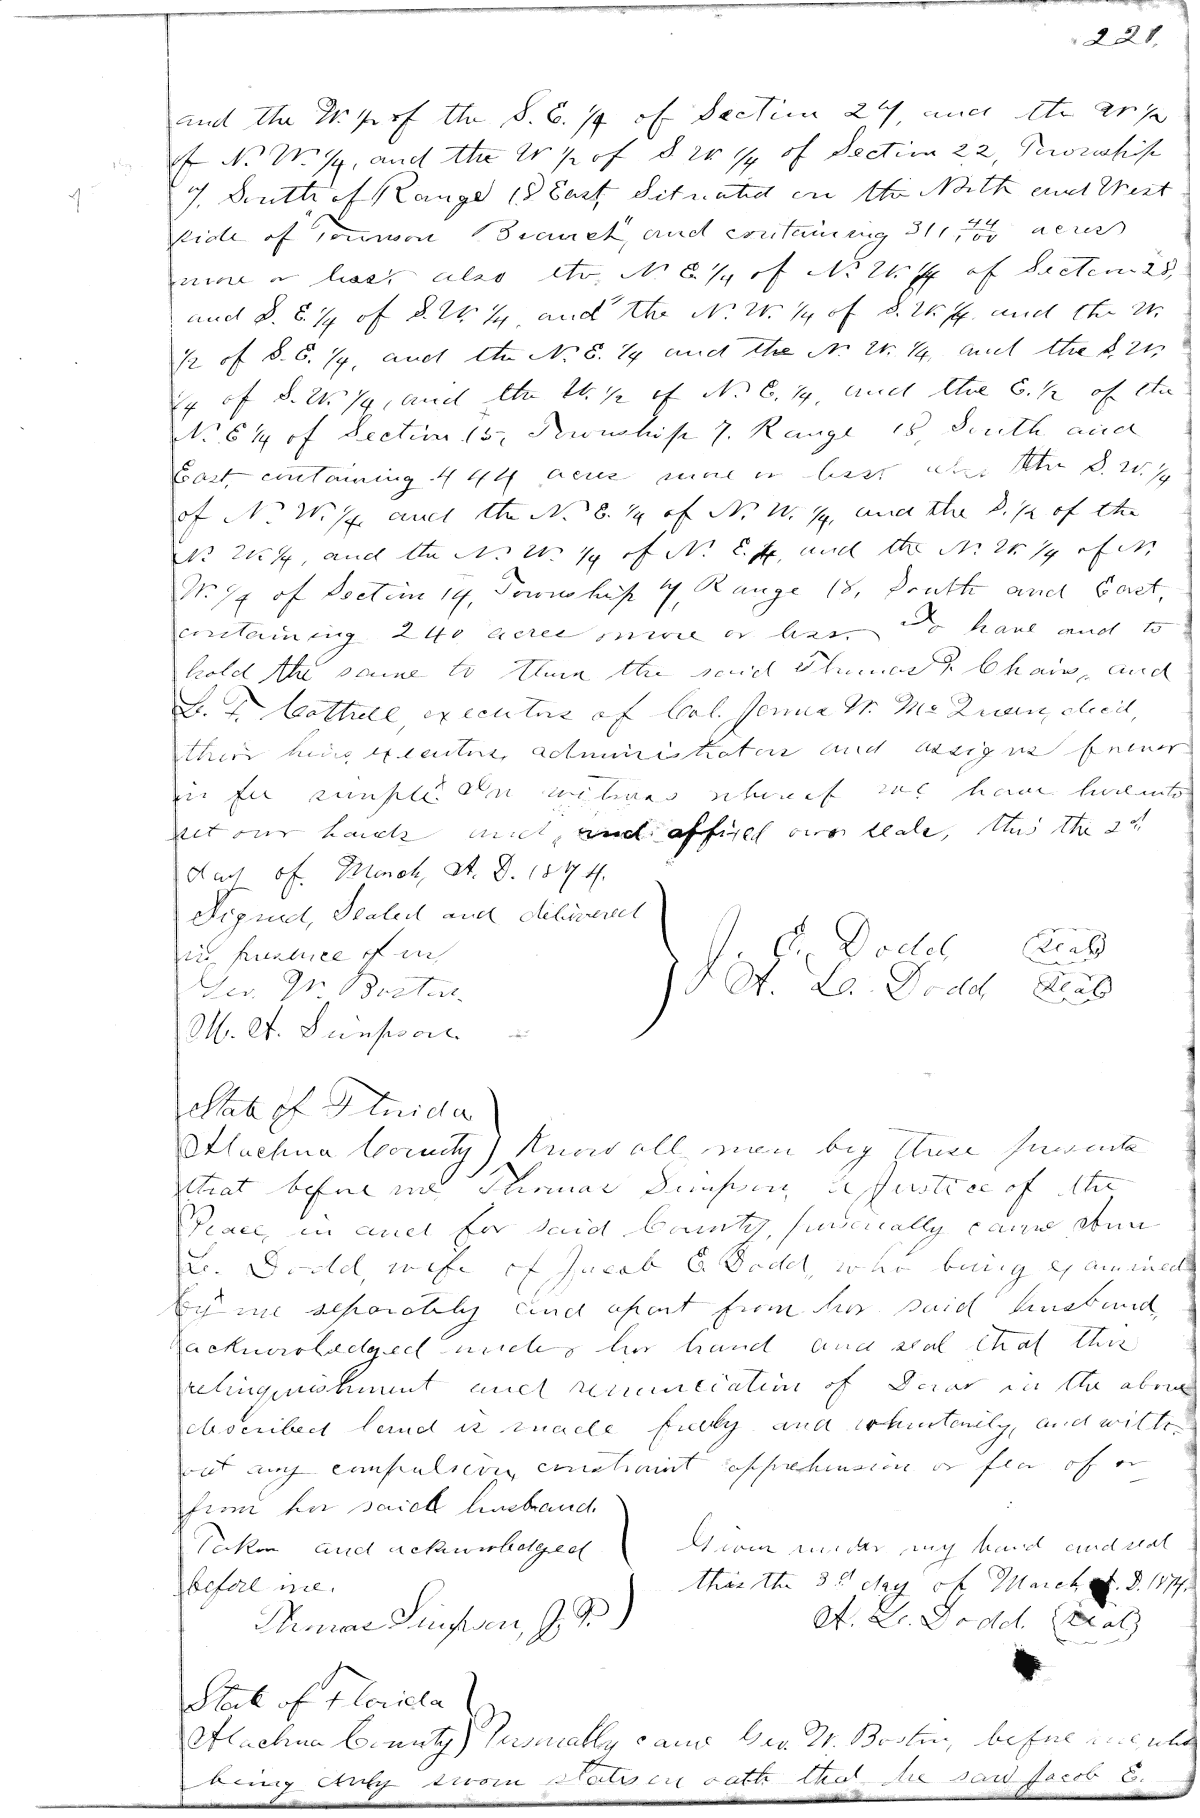 221.
and the W. 1/2 of the S. E. 1/4 of Section 27, and the W 1/2
of N. W. 1/4, and the W 1/2 of S W 1/4 of Section 22, Township
7, South of Range 18 East, Situated on the North and West
side of "Townson Branch", and containing 311, 44/100 acres
more or less. also the N E 1/4 of N. W. 1/4 of Section 28,
and S. E. 1/4 of S. W. 1/4, and the N. W. 1/4 of S. W. 1/4 and the W.
1/2 of S. E. 1/4, and the N. E. 1/4 and the N. W. 1/4, and the S. W.
1/4 of S. W. 1/4, and the W. 1/2 of N. E. 1/4, and the E. 1/2 of the
N. E 1/4 of Section 15, Township 7. Range 18, South and
East, containing 444 acres more or less also the S. W. 1/4
of N. W. 1/4, and the N. E. 1/4 of N. W. 1/4, and the S. 1/2 of the
N. W. 1/4, and the N. W. 1/4 of N. E. 1/4, and the N. W. 1/4 of N.
W. 1/4 of Section 14, Township 7, Range 18, South and East,
containing 240 acres more or less. To have and to
hold the same to them the said Thomas P. Chaires, and
L. T. Cottrell, executors of Col. James W. McQueen, decd,
their heirs, executors, administrators and assigns forever
in fee simple. In witness whereof we have hereunto
set our hands and, and affixed our seals, this the 2d
day of March, A. D. 1874.
Signed, Sealed and delivered
in presence of us,
Geo. W. Bostin.
M. A. Simpson.
J. E. Dodd, (Seal)
A. L. Dodd (Seal)
State of Florida
Alachua County) Know all men by these presents
that before me Thomas Simpson, a Justice of the
Peace, in and for said County, personally came Ann
L. Dodd, wife of Jacob E. Dodd, who being examined
by me separately and apart from her said husband,
acknowledged under her hand and seal that this
relinquishment and renunciation of Dower in the above
described land is made freely and voluntarily, and with-
out any compulsion, constraint apprehension or fear of or
from her said husband.
Taken and acknowledged
before me.
Thomas Simpson, J. P.
Given under my hand and seal
this the 3d day of March A. D. 1874.
A. L. Dodd. (Seal)
State of Florida
Alachua County) Personally came Geo. W. Bostin, before me, who
being duly sworn states on oath that he saw Jacob E.